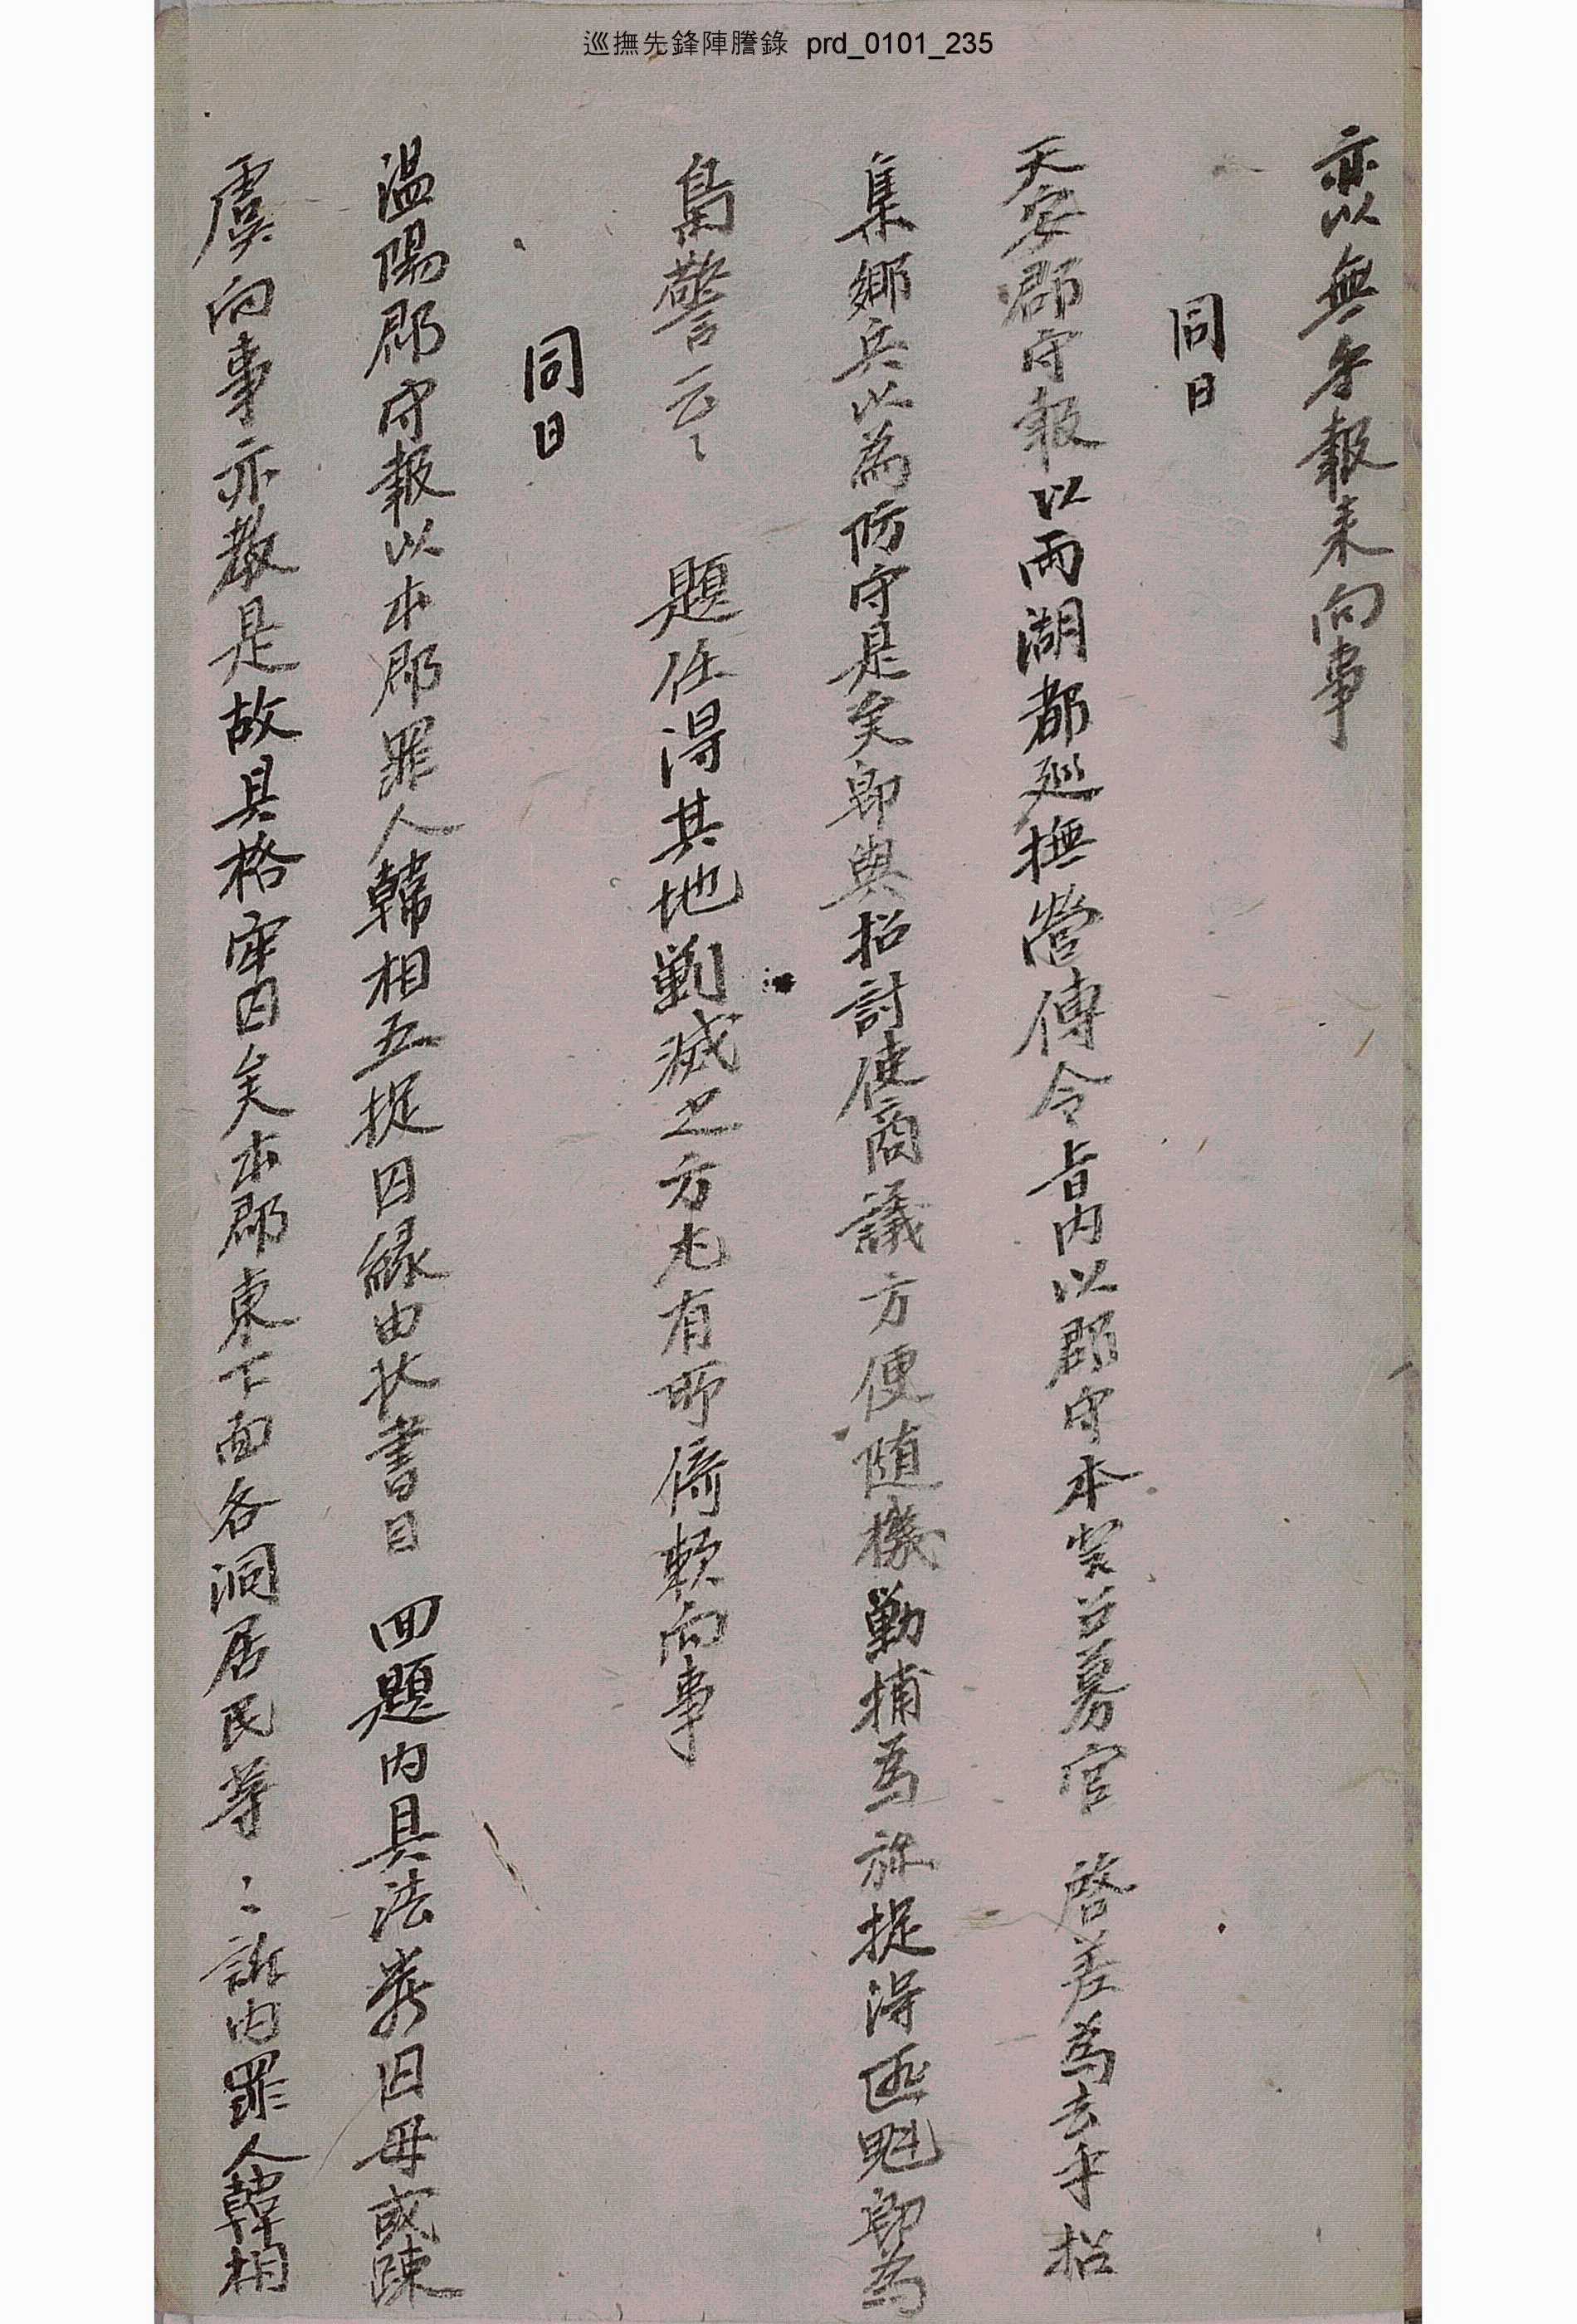 巡撫先鋒陣謄錄 prd_0101_235
亦以無弊報来向事
同日
天安郡守報以兩湖都巡撫營傳令旨內以郡守本営召募官 啓差為去乎招
集鄉兵以為防守是矣卽與招討使商議方便随機勦捕為㫆捉得匪魁卽為
梟警云々 題任得其地勦滅之方尤有所倚軟向事
同日
溫陽郡守報以本郡罪人韓相五捉囚緣由状書目 回題內具法嚴囚毋或踈
虞向事亦敎是故具格牢囚矣本郡東下面各洞居民等々訴內罪人韓相